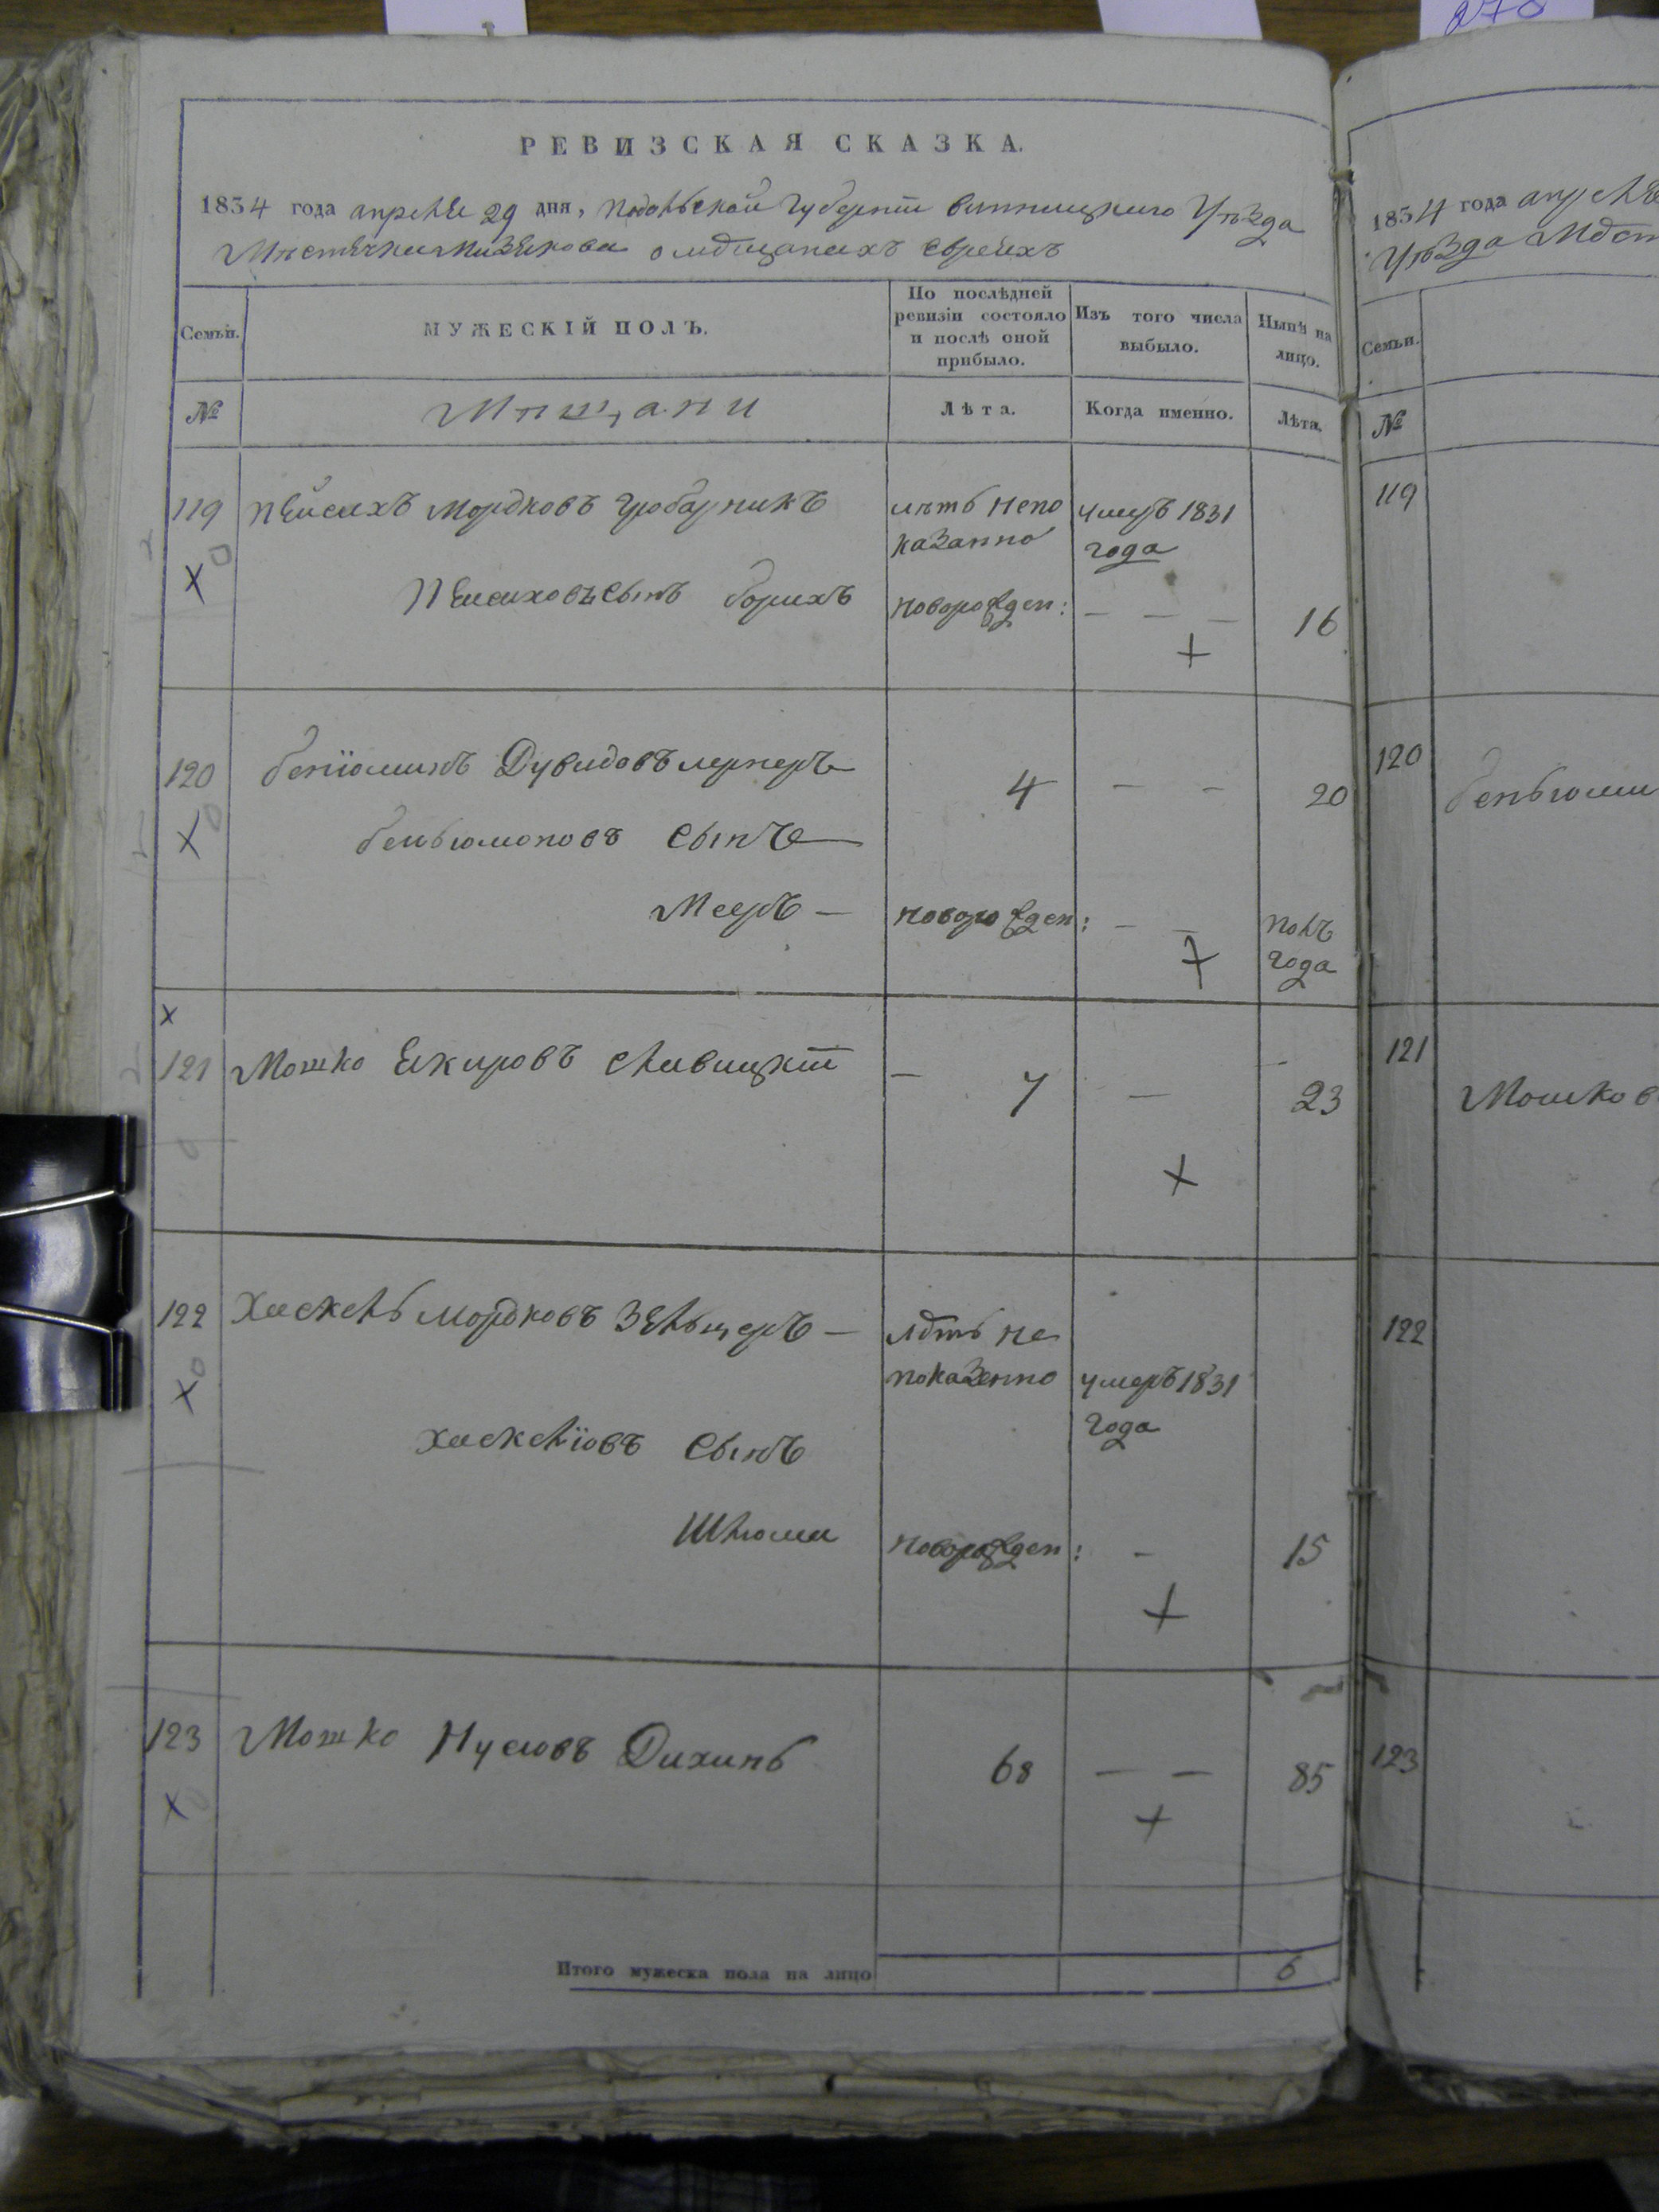 278
РЕВИЗСКАЯ СКАЗКА.
1834 года апреля 29 дня, Подольской Губернiи винницкого Уѣзда
Мѣстечка Мизякова о мѣщанахъ евреяхъ
Семьи.
МУЖЕСКIЙ ПОЛЪ.
По послѣдней ревизiи состояло и послѣ оной прибыло.
Изъ того числа выбыло.
Нынѣ на лицо.
№
Мѣщани
Лѣта.
Когда именно.
Лѣта.
119 Пейсахъ Мордковъ гробарникъ лѣтъ непо умеръ 1831
казанно года
Пейсаховъ сынъ борихъ новорожден: — — — 16
120 бенiоминъ Дувидовъ лернеръ 4 — — 20
беньюмоновъ сынъ
Мееръ — новорожден: — — полъ
года
121 Мошко Екировъ Славицкiй — 7 — 23
122 Хаскель мордковъ Зельцеръ — лѣтъ не
показанно умеръ 1831
года
хаскелiовъ сынъ
Шлюма новорожден: — 15
123 Мошко Нусювъ Дихинъ 68 — — 85
Итого мужеска пола на лицо 6
1834 года апреля
Уѣзда Мѣст
Семьи.
№
119
120
беньюми
121
Мошков
122
123